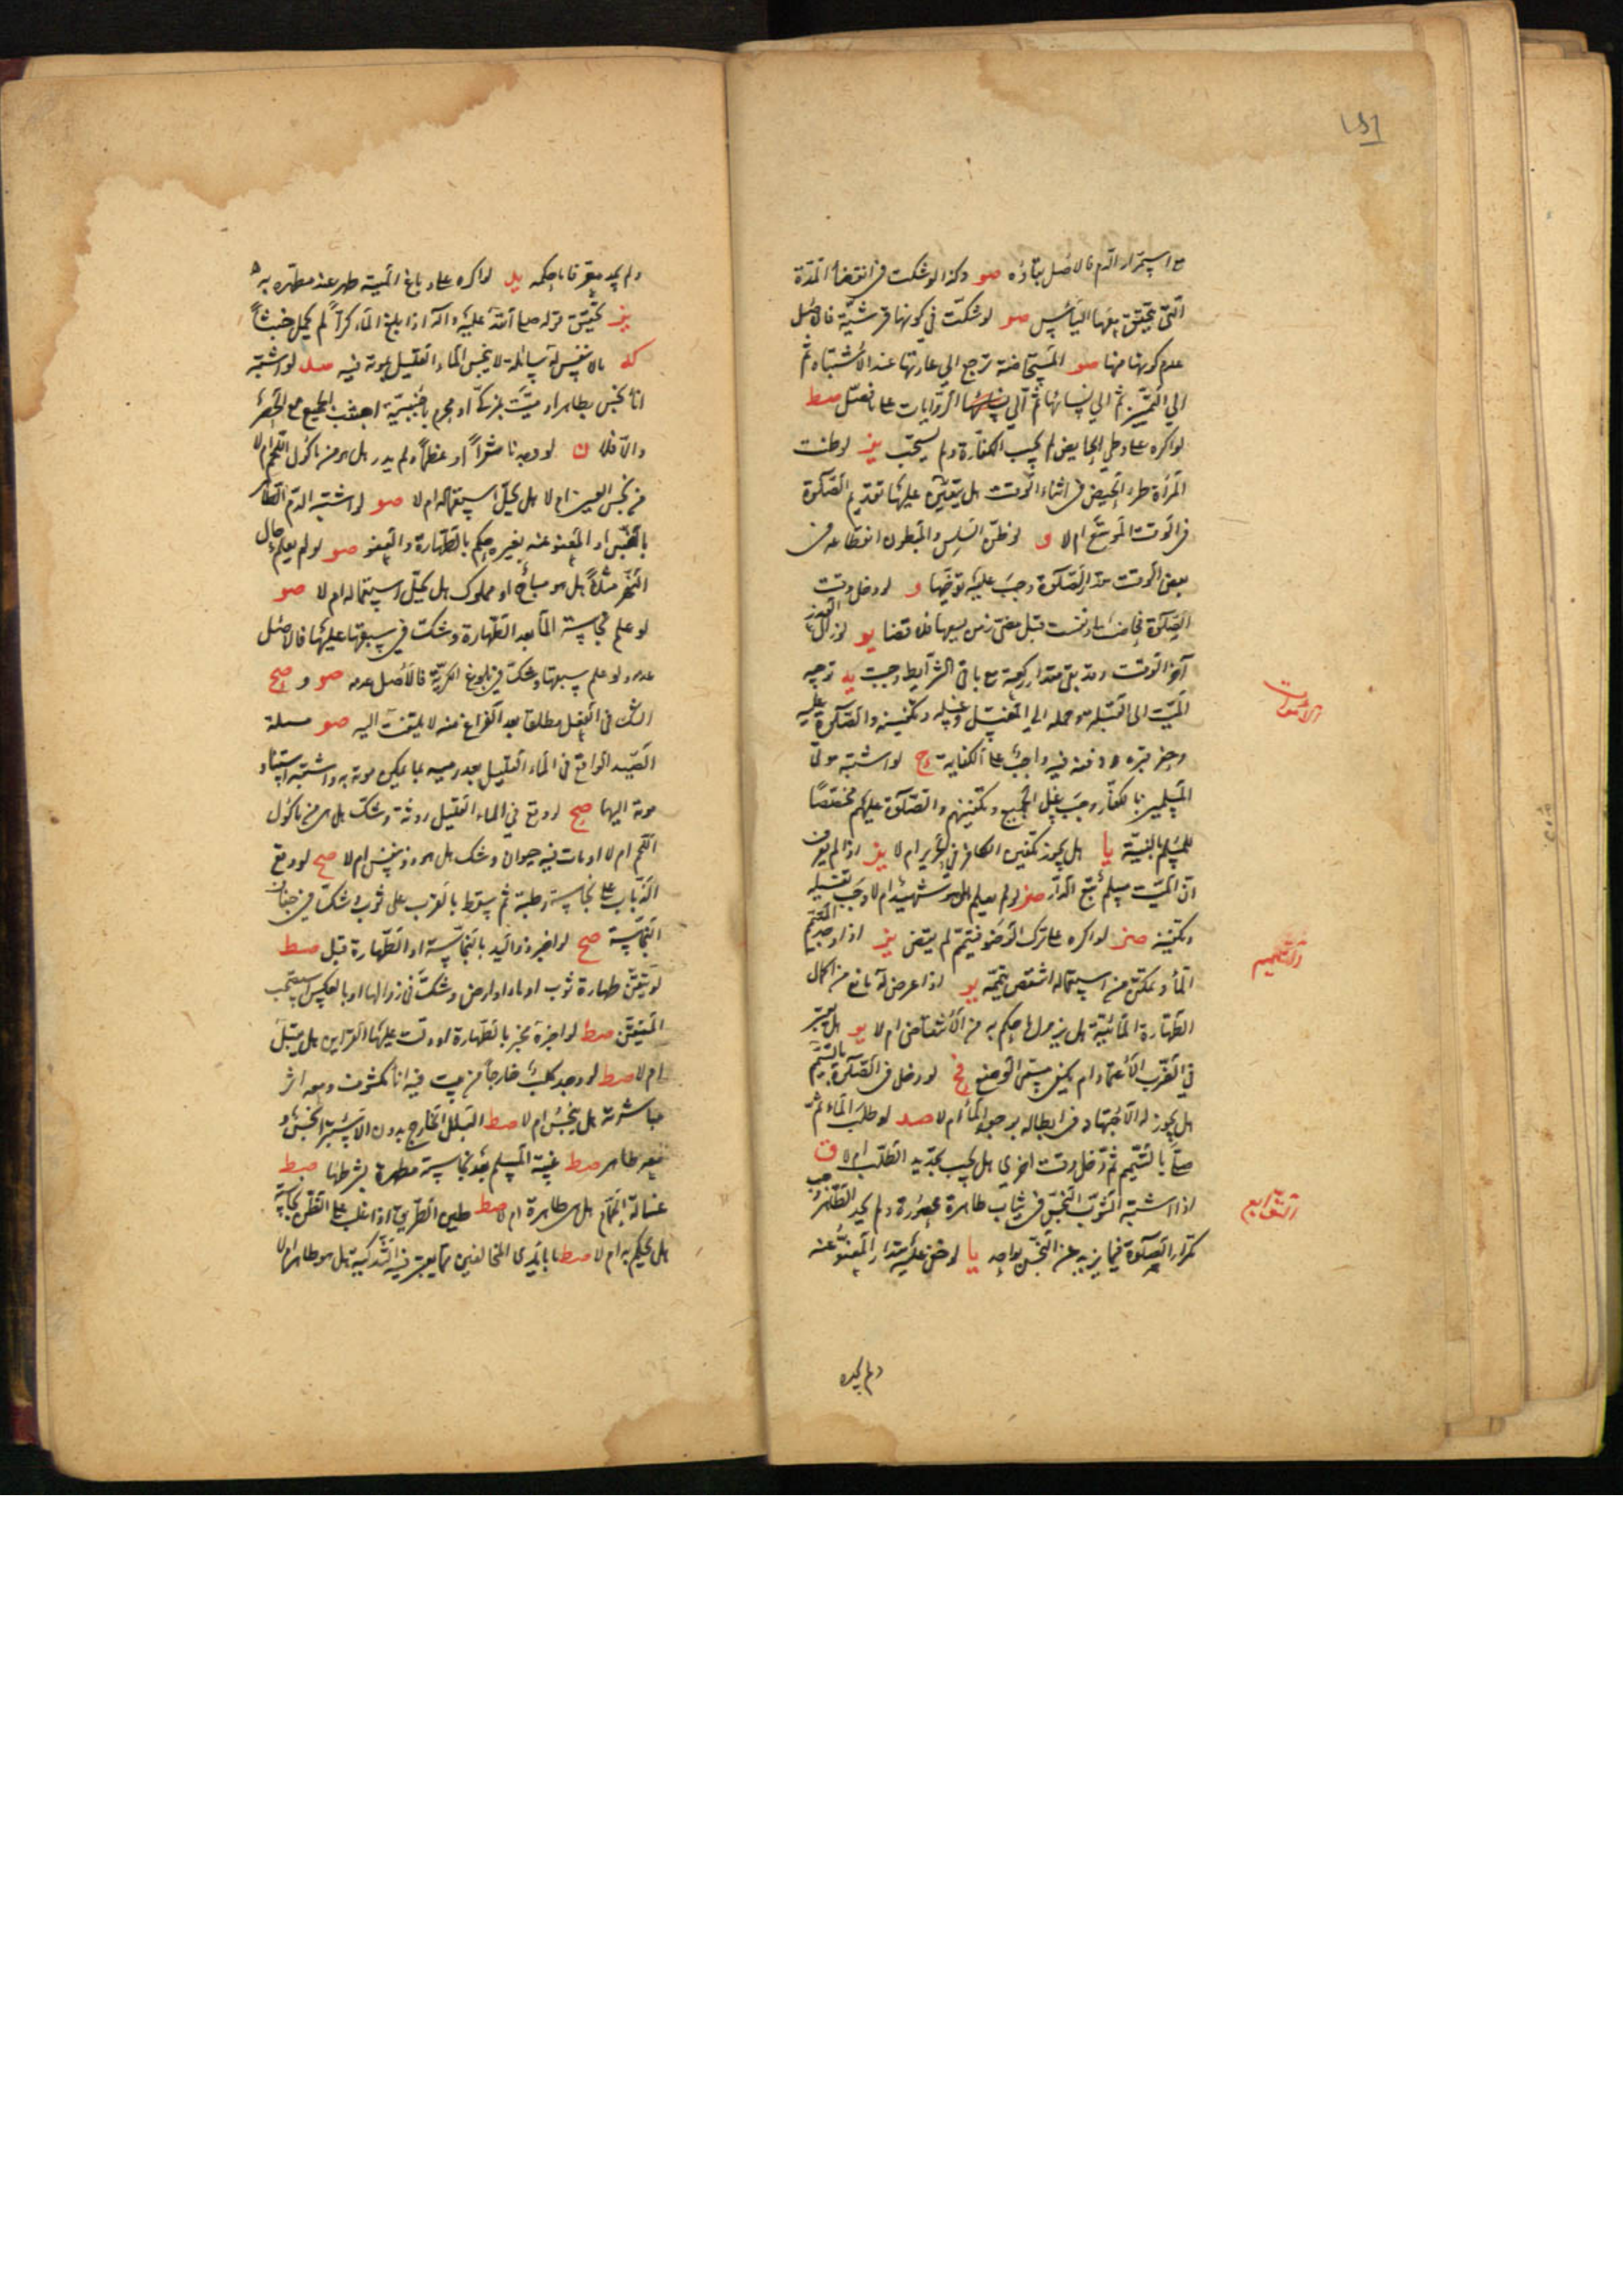 مع استمرار الدم فالاصل بقاؤه صو وكذا لو شكت في انقضاء المدة
التي يتحقق بعدها الياس صو لو شكت في كونها قرشية فالاصل
عدم كونها منها صو المستحاضة ترجع الي عادتها عند الاشتباه ثم
الي التميز ثم الي نسائها ثم الي الروايات علي ما فصل صط
لو اكره علي وطي الحايض لم يجب الكفارة ولم يستحب يز لو ظنت
المرأة طرو الحيض في اثناء الوقت هل يتعين عليها تقديم الصلوة
في الوقت الموسع ام لا و لو ظن السلس والمبطون انقطاعه في
بعض الوقت بقدر الصلوة وجب عليه توخيها و لو دخل وقت
الصلوة فحاضت او نفست قبل مضي زمن يسعها فلا قضا يو لو زال العذر
آخر الوقت وقد بقي مقدار ركعة مع باقي الشرايط وجبت يه توجيه
الاموات
الميت الي القبلة وحمله الي المغتسل وغسله وتكفينه والصلوة عليه
وحفر قبره ودفنه فيه واجب علي الكفاية لو اشتبه موتي
المسلمين بالكفار وجب غسل الجميع وتكفينهم والصلوة عليهم مختصا
للمسلم بالنية يا هل يجوز تكفين الكافر في الحرير ام لا يز اذا لم يعرف
ان الميت مسلم تبع الدار صز لو لم يعلم هل هو شهيد ام لا وجب تغسيله
وتكفينه صز لو اكره علي ترك الوضو فتيمم لم يقض يز اذا وجد المتيمم
والتيمم
الماء وتمكن من استعماله انتقض تيممه يو اذا عرض له مانع من اكمال
الطهارة المائية هل يزول ما حكم به من الانتقاض ام لا يو هل يعتبر
في الضرب الاعتماد ام يكفي مسمي الوضع لو دخل في الصلوة بالتيمم
هل يجوز له الاجتهاد في ابطاله بوجود الماء ام لا صد لو طلب الماء ثم
صلي بالتيمم ثم دخل وقت اخري هل يجب تجديد الطلب ام لا ق
التوابع
اذا اشتبه الثوب النجس في ثياب طاهرة محصورة ولم يجد الطاهر وجب
تكرار الصلوة فيما يزيد عن النجس بواحد يا لو خفي عليه مقدار المعفو عنه
ولم يجد
ولم يجد معرفا بحكمه يد لو اكره علي دباغ الميتة طهر عند مطهره به
يز تحقيق قوله صلي الله عليه وآله اذا بلغ الماء كرا لم يحمل خبثا
كه ما لا نفس له سائلة لا ينجس الماء القليل بموته فيه صد لو اشتبه
اناء نجس بطاهر او ميت بمذكي او محرم باجنبية اجتنب الجميع مع الحصر
والا فلا ن لو وجدنا شعرا او عظما ولم يدر هل هو من مأكول اللحم ام لا
من نجس العين ام لا هل يحل استعماله ام لا صو لو اشتبه الدم الطاهر
بالنجس او المعفو عنه بغيره حكم بالطهارة والعفو صو لو لم يعلم حال
النهر مثلا هل هو مباح او مملوك هل يحل استعماله ام لا صو
لو علم نجاسة الماء بعد الطهارة وشك في سبقها عليها فالاصل
عدمه ولو علم سبقها وشك في بلوغ الكرية فالاصل عدمه صو و صح
الشك في الفعل مطلقا بعد الفراغ منه لا يلتفت اليه صو مسئلة
الصيد الواقع في الماء القليل بعد رميه بما يمكن موته به واشتبه استناد
موته اليهما صح لو وقع في الماء القليل روثة وشك هل هي من مأكول
اللحم ام لا او مات فيه حيوان وشك هل هو ذو نفس ام لا صح لو وقع
الذباب علي نجاسة رطبة ثم سقط بالقرب علي ثوب وشك في جفاف
النجاسة صح لو اخبر ذو اليد بالنجاسة او الطهارة قبل صط
لو تيقن طهارة ثوب او ماء او ارض وشك في زوالها او بالعكس استصحب
المتيقن صط لو اخبره مخبر بالطهارة او دلت عليها القراين هل يقبل
ام لا صط لو وجد كلب خارجا من بيت فيه اناء مكشوف ومعه اثر
مباشرته هل ينجس ام لا صط البلل الخارج بدون الاستبراء نجس و
معه طاهر صط غيبة المسلم بعد نجاسته مطهرة بشرطها صط
غسالة الحمام هل هي طاهرة ام لا صط طين الطريق اذا غلب علي الظن نجاسته
هل يحكم به ام لا صط ما بايدي المخالفين مما يعتبر فيه التذكية هل هو طاهر ام لا